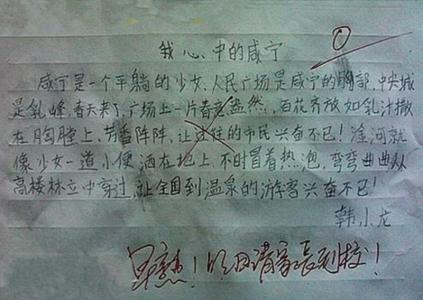 我心中的咸宁
咸宁是一个平躺的少女、人民广场是咸宁的胸部,中央城
是乳峰.春天来了,广场上一片春意盎然,百花齐放如乳汁撒
在胸膛上、芳香阵阵、让过往的市民兴奋不已!淦河就
像少女一道小便,洒在地上,不时冒着热泡,弯弯曲曲从
高楼林立中穿过,让全国到温泉的游客兴奋不已!
韩小龙
早熟!明日请家长到校!